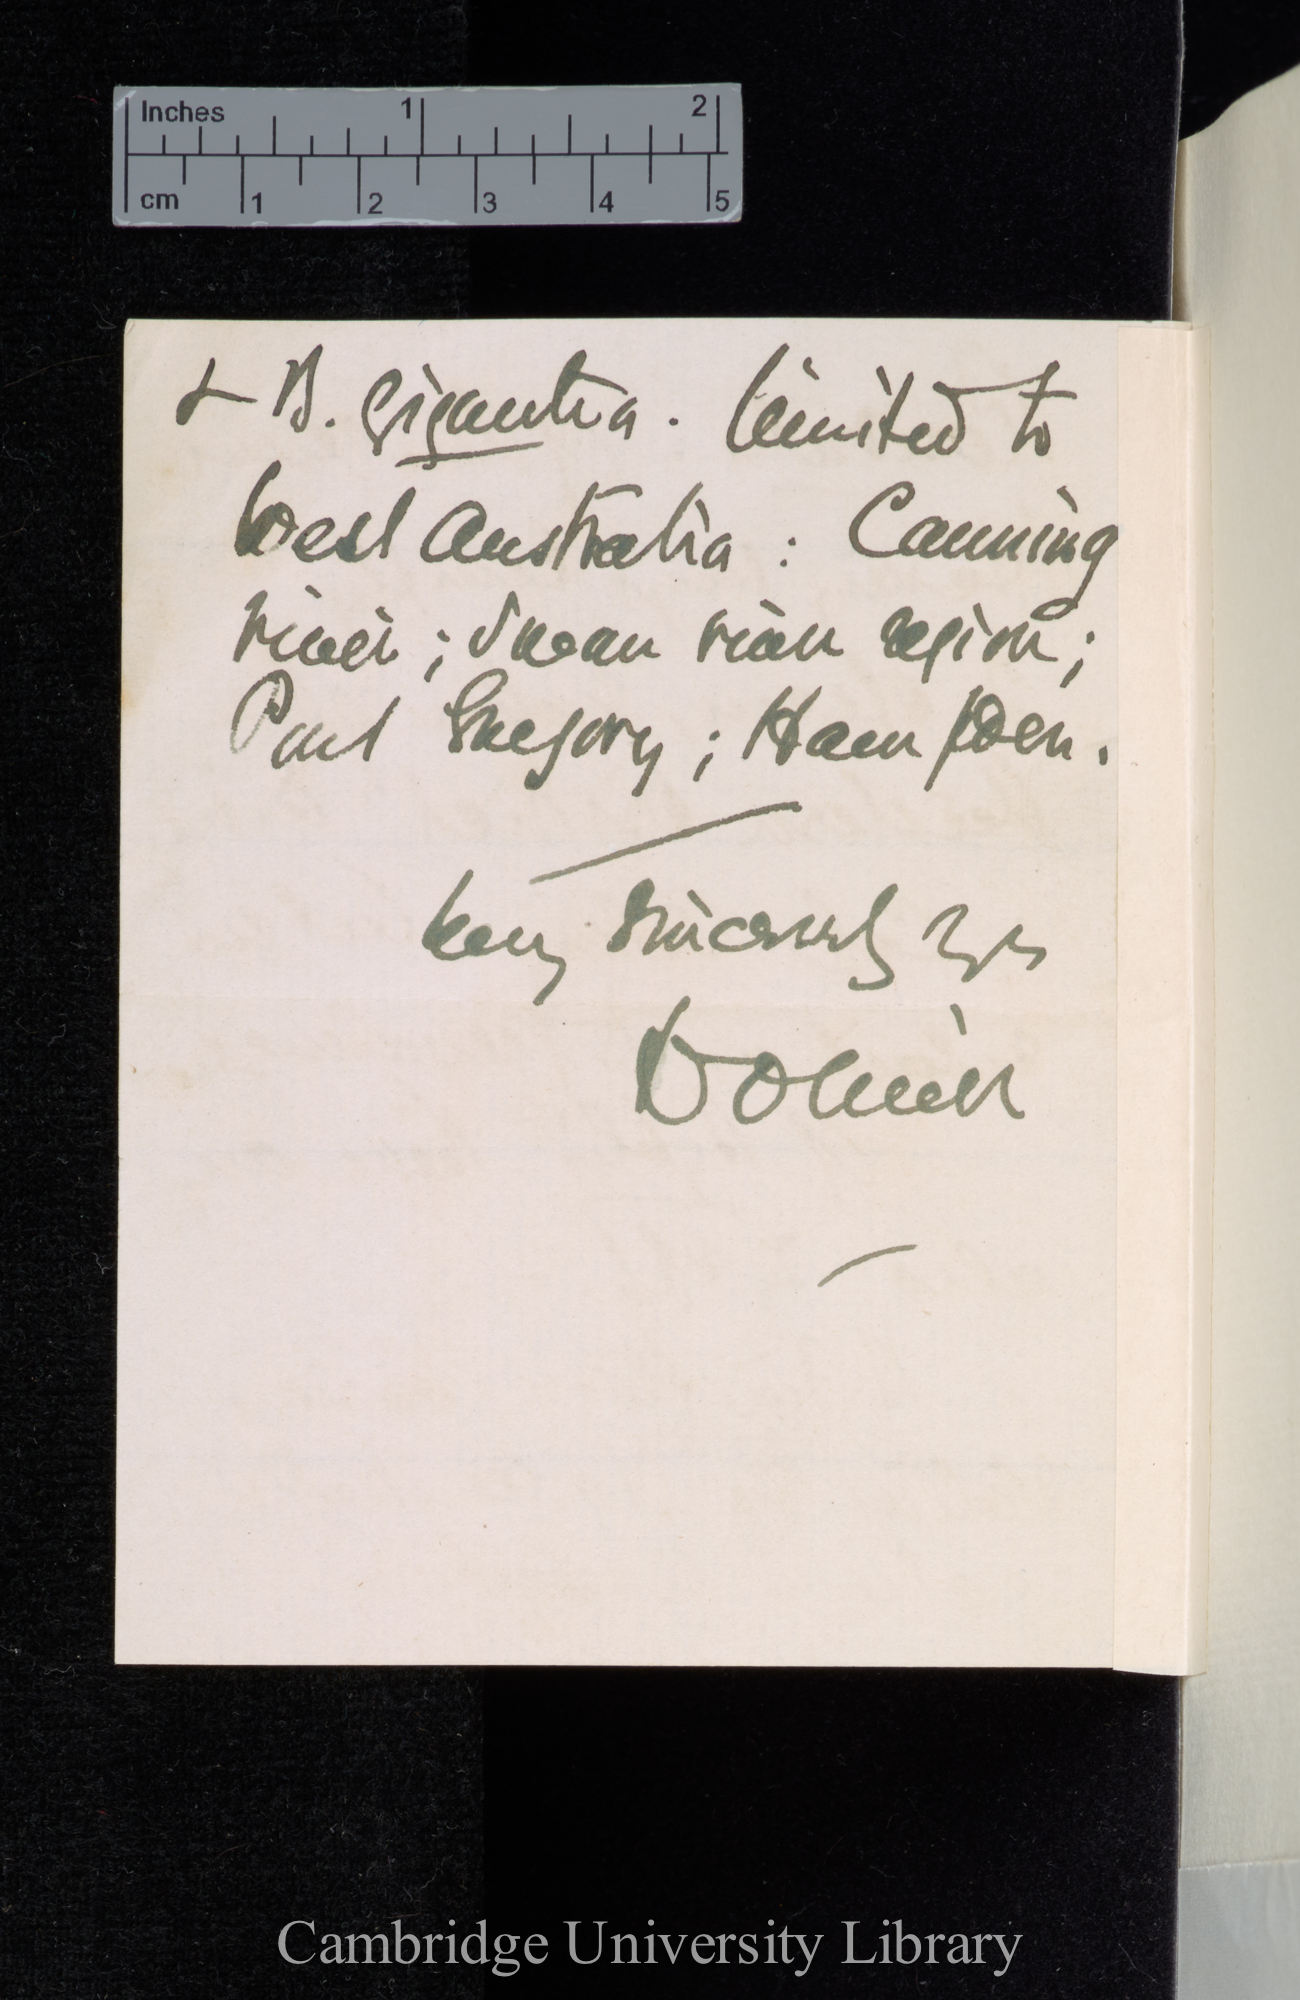 Inches 1 2
cm 1 2 3 4 5
& B. gigantea. Limited to
West Australia: Canning
river; Swan river region;
Port Gregory; Hampden.
very sincerely yrs
D Oliver
Cambridge University Library